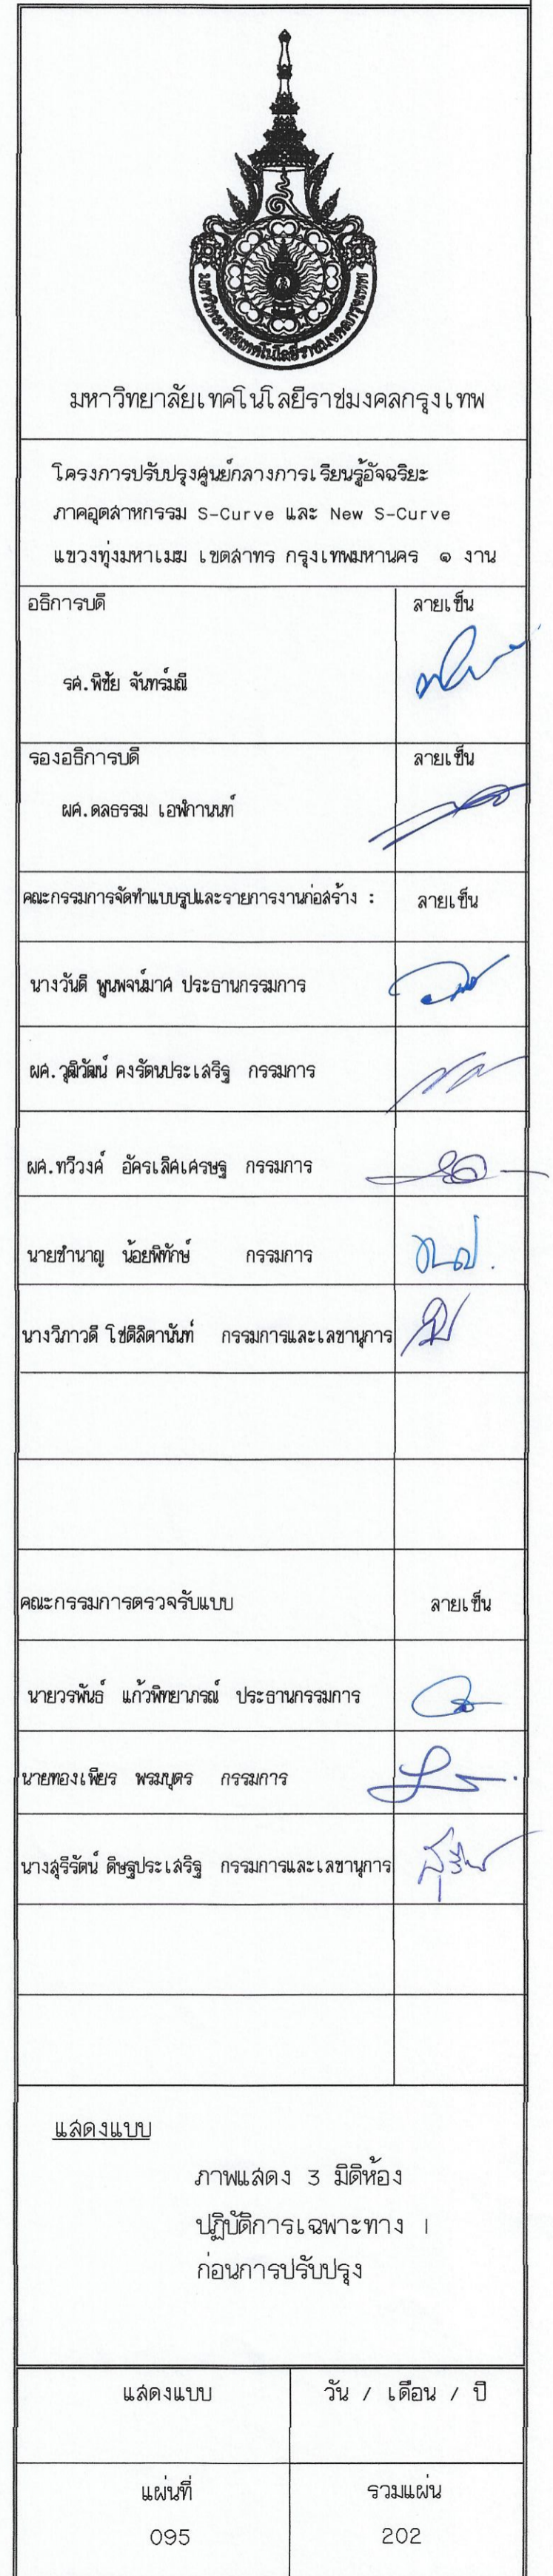 มหาวิทยาลัยเทคโนโลยีราชมงคลกรุงเทพ
มหาวิทยาลัยเทคโนโลยีราชมงคลกรุงเทพ
โครงการปรับปรุงศูนย์กลางการเรียนรู้อัจฉริยะ
ภาคอุตสาหกรรม S-Curve และ New S-Curve
แขวงทุ่งมหาเมฆ เขตสาทร กรุงเทพมหานคร ๑ งาน
อธิการบดี ลายเซ็น
รศ.พิชัย จันทร์มณี
รองอธิการบดี ลายเซ็น
ผศ.ดลธรรม เอฬกานนท์
คณะกรรมการจัดทำแบบรูปและรายการงานก่อสร้าง : ลายเซ็น
นางวันดี พูนพจน์มาศ ประธานกรรมการ
ผศ.วุฒิวัฒน์ คงรัตนประเสริฐ กรรมการ
ผศ.ทวีวงศ์ อัครเลิศเศรษฐ กรรมการ
นายชำนาญ น้อยพิทักษ์ กรรมการ
นางวิภาวดี โชติลิตานันท์ กรรมการและเลขานุการ
คณะกรรมการตรวจรับแบบ ลายเซ็น
นายวรพันธ์ แก้วพิทยาภรณ์ ประธานกรรมการ
นายทองเพียร พรมบุตร กรรมการ
นางสุรีรัตน์ ดิษฐประเสริฐ กรรมการและเลขานุการ
แสดงแบบ
ภาพแสดง 3 มิติห้อง
ปฏิบัติการเฉพาะทาง 1
ก่อนการปรับปรุง
แสดงแบบ วัน / เดือน / ปี
แผ่นที่ รวมแผ่น
095 202